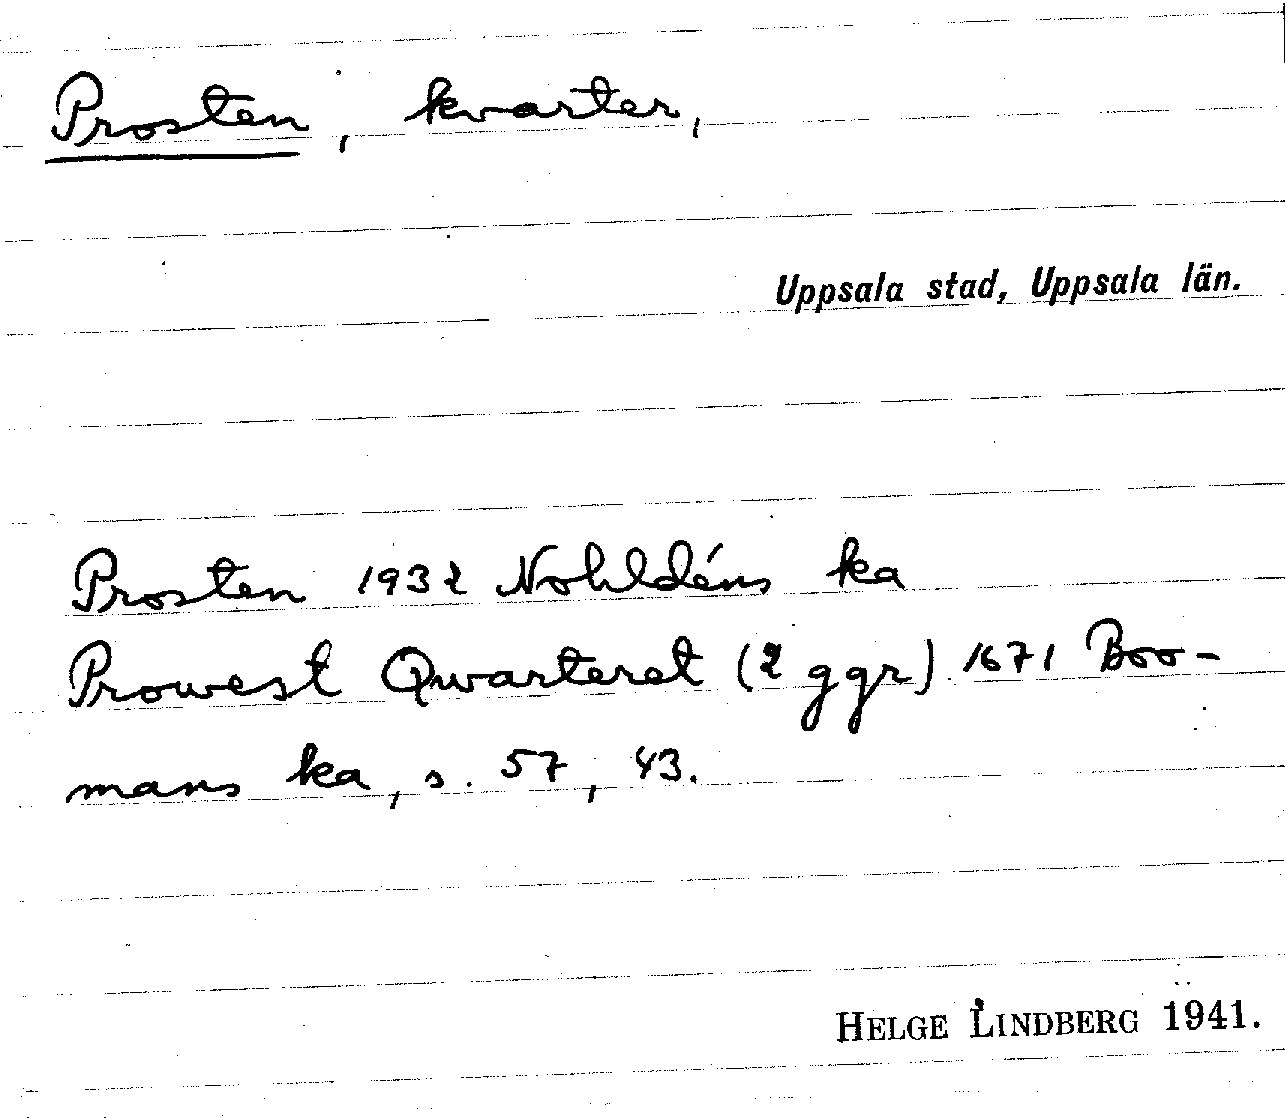 Prosten, kvarter,
Uppsala stad, Uppsala län.
Prosten 1932 Nohldéns ka
Prowest Qwarteret (2 ggr) 1671 Boo-
mans ka, s. 57, 43.
HELGE LINDBERG 1941.